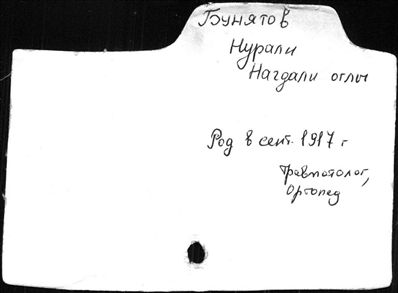 Бунятов
Нурали
Нагдали оглы
Род в сент. 1917 г
Травматолог,
Ортопед